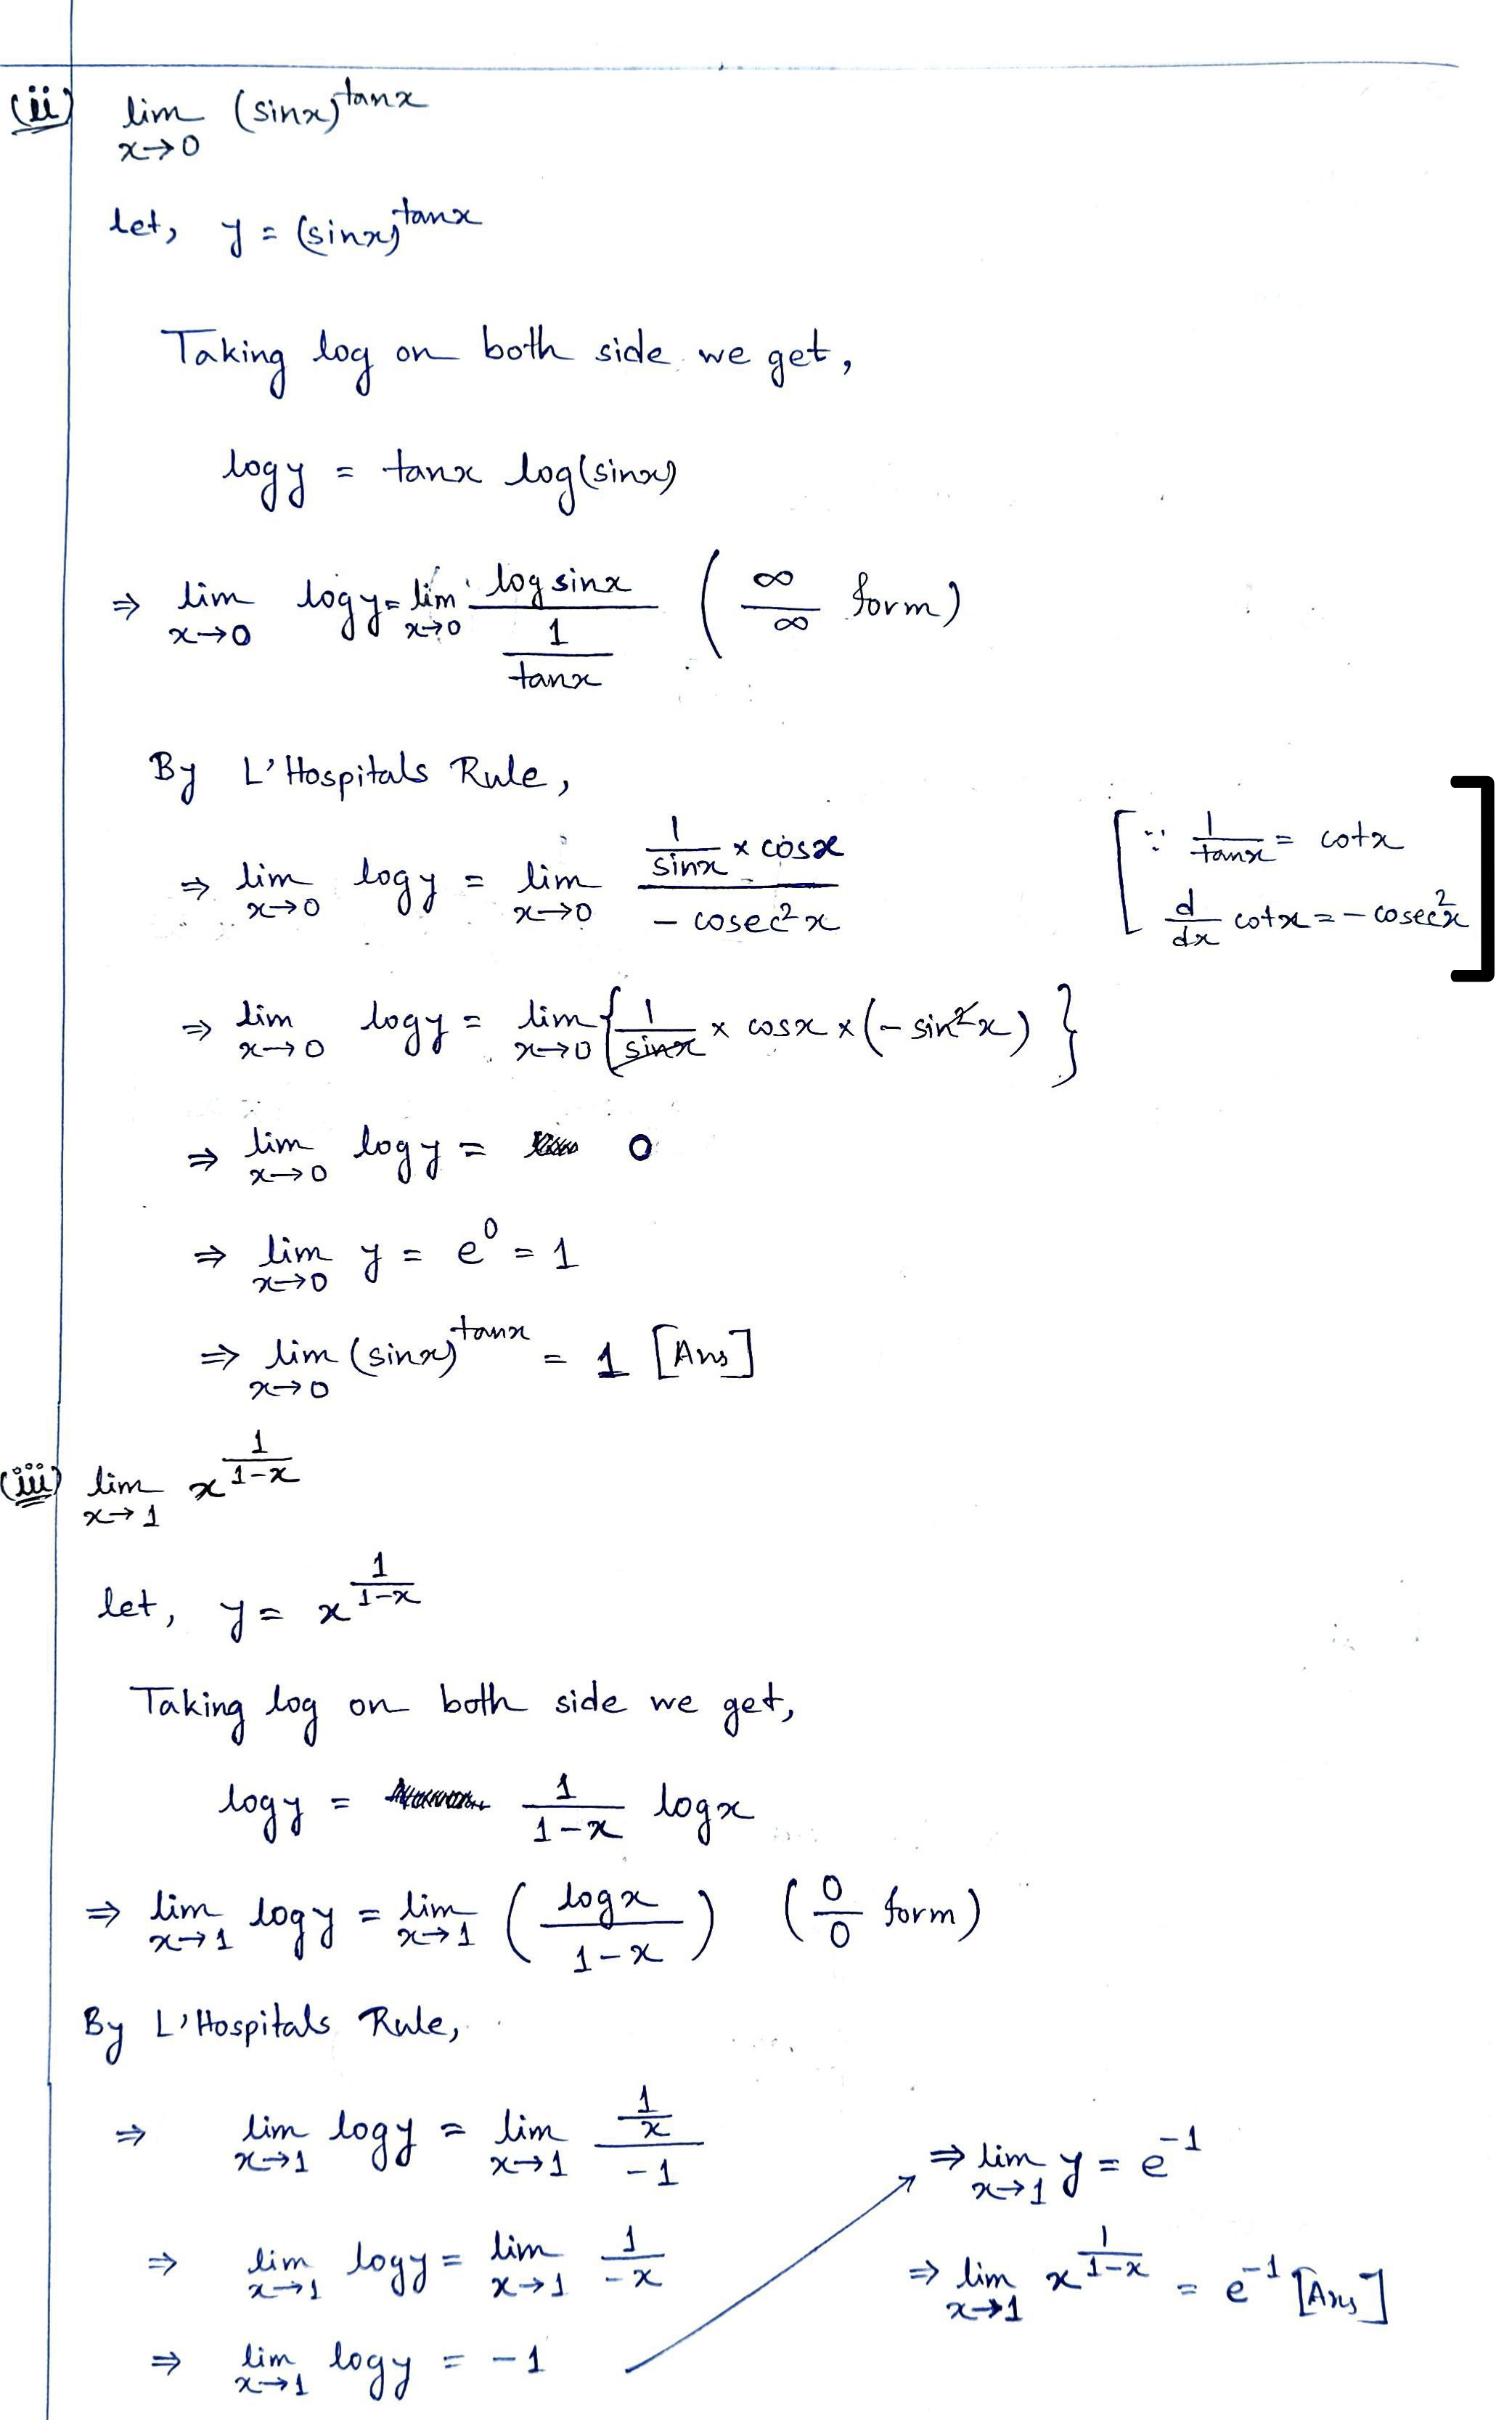 (ii) lim x→0 (sinx)^tanx
let, y = (sinx)^tanx
Taking log on both side we get,
logy = tanx log(sinx)
⇒ lim x→0 logy = lim x→0 logsinx / (1/tanx) (∞/∞ form)
By L'Hospitals Rule,
⇒ lim x→0 logy = lim x→0 (1/sinx × cosx) / (- cosec²x) [∵ 1/tanx = cotx
d/dx cotx = - cosec²x]
⇒ lim x→0 logy = lim x→0 {1/sinx × cosx × (- sin²x)}
⇒ lim x→0 logy = 0
⇒ lim x→0 y = e^0 = 1
⇒ lim x→0 (sinx)^tanx = 1 [Ans]
(iii) lim x→1 x^(1/(1-x))
let, y = x^(1/(1-x))
Taking log on both side we get,
logy = 1/(1-x) logx
⇒ lim x→1 logy = lim x→1 (logx / (1-x)) (0/0 form)
By L'Hospitals Rule,
⇒ lim x→1 logy = lim x→1 (1/x) / -1
⇒ lim x→1 logy = lim x→1 1/-x
⇒ lim x→1 logy = -1
⇒ lim x→1 y = e^-1
⇒ lim x→1 x^(1/(1-x)) = e^-1 [Ans]